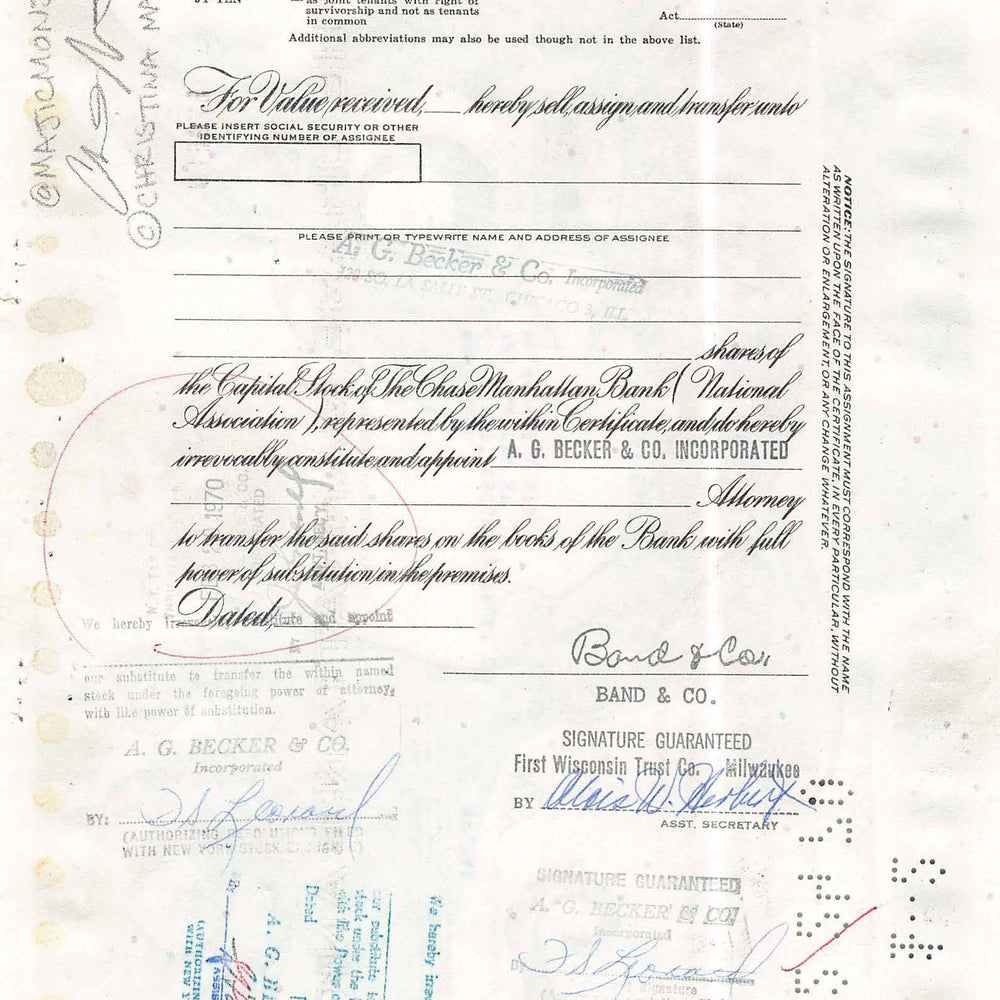 as joint tenants with right of
survivorship and not as tenants
in common
Act
(State)
Additional abbreviations may also be used though not in the above list.
For Value received, hereby sell, assign and transfer unto
PLEASE INSERT SOCIAL SECURITY OR OTHER
IDENTIFYING NUMBER OF ASSIGNEE
PLEASE PRINT OR TYPEWRITE NAME AND ADDRESS OF ASSIGNEE
A. G. Becker & Co. Incorporated
SO. LA SALLE ST., CHICAGO 3, ILL.
shares of
the Capital Stock of The Chase Manhattan Bank (National
Association), represented by the within Certificate, and do hereby
irrevocably constitute and appoint A. G. BECKER & CO. INCORPORATED
Attorney
to transfer the said shares on the books of the Bank with full
power of substitution in the premises.
Dated,
We hereby and appoint
our substitute to transfer the within named
stock under the foregoing power of attorney,
with like power of substitution.
A. G. BECKER & CO.
Incorporated
BY: 
(AUTHORIZING RESOLUTIONS FILED
WITH NEW YORK STOCK
Band & Co.
BAND & CO.
SIGNATURE GUARANTEED
First Wisconsin Trust Co. Milwaukee
BY Alois W. Herbert
ASST. SECRETARY
SIGNATURE GUARANTEED
A. G. BECKER & CO.
Incorporated
By
Signature
NOTICE: THE SIGNATURE TO THIS ASSIGNMENT MUST CORRESPOND WITH THE NAME
AS WRITTEN UPON THE FACE OF THE CERTIFICATE, IN EVERY PARTICULAR, WITHOUT
ALTERATION OR ENLARGEMENT, OR ANY CHANGE WHATEVER.
©CHRISTINA
1970
We hereby
our substitute
stock under the
with like power
Dated
A. G.
By
WITH NEW